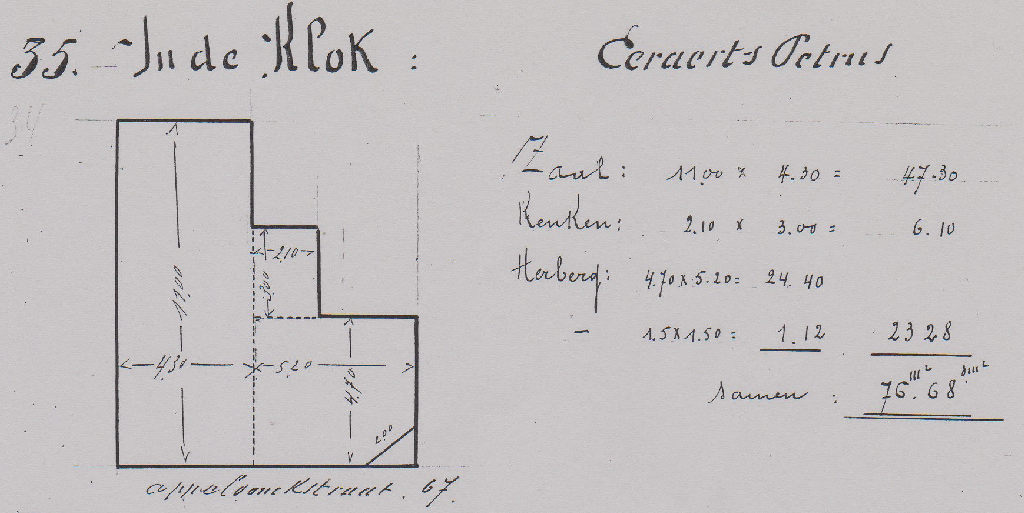 35. In de Klok :
Eeraerts Petrus
34
Zaal : 11,00 x 4.30 = 47.30
Keuken : 2.10 x 3.00 = 6.10
Herberg : 4.70 x 5.20 = 24.40
- 1.5 x 1.50 = 1.12 23 28
samen : 76.m² 68 dm²
11,00
2,10
3,00
4,30
5,20
4,70
2,00
appeldonckstraat . 67